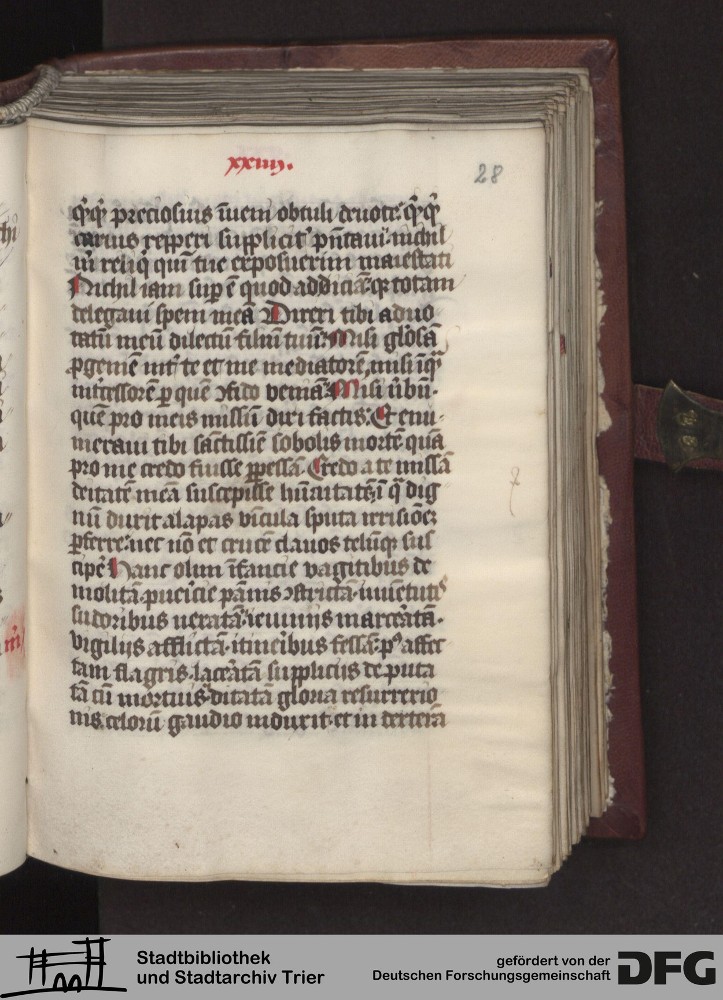 xxiiij.
28
q̄q̄ preciosius īueni obtuli deuote· q̄q̄
carius repperi supplicit᷑ p̄ntaui· nichil
m̄ reliq̄ qui̅ tue exposuerim maiestati
Nichil iam suꝑ ē quod addicā· qꝛ totam
delegaui spem meā Direxi tibi aduo
catū meū dilectū filiū tuū· Misi gl̓osā
ꝓgeniē int᷑ te et me mediatorē, misi īquā
int᷑cessorē ꝑ quē ꝯfido veniā· Misi v̓bū·
quē pro meis missū dixi factis· Et enu
meraui tibi sāctissiē sobolis mortē quā
pro me credo fuisse ꝑpessā· Credo a te missā
deitatē meā suscepisse hūaitatē, ī q̄ dig
nū duxit alapas vīcula sputa irrisiōeꝫ
ꝑferre· nec nō et crucē clauos telūqꝫ sus
cipe᷑ Hanc olim īfancie vagitibus de
molitā· pueᷣicie pānis ꝯstrictā· iuuētutis
sudoribus uexatā· ieiuniis marceᷣatā·
vigilijs afflictā· itineᷣibus fessā· pꝰ affec
tam flagris· laceᷣatā suppliciis· de puta
tā cū mortuis· ditatā gloria resurrexio
nis. celorū gaudio induxit· et in dexterā
Stadtbibliothek
und Stadtarchiv Trier
gefördert von der
Deutschen Forschungsgemeinschaft
DFG